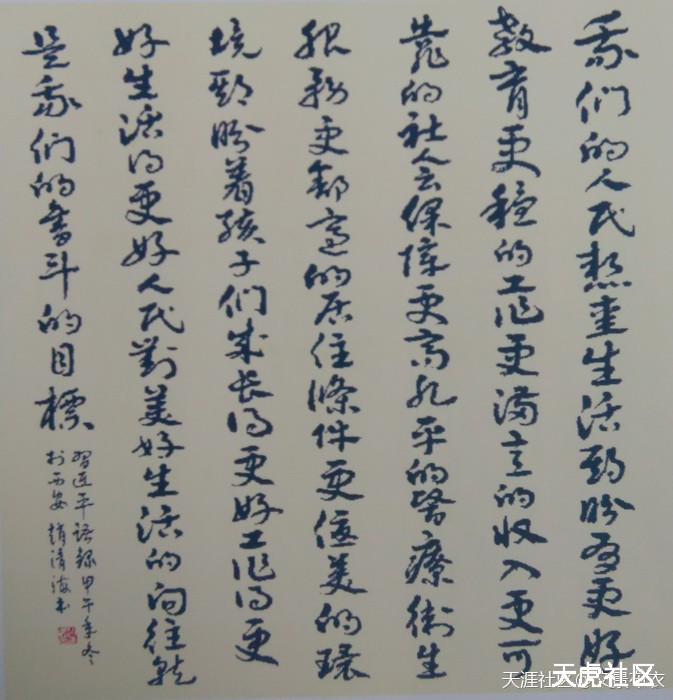 我们的人民热爱生活期盼有更好
教育更稳的工作更满意的收入更可
靠的社会保障更高水平的醫療衛生
服務更舒適的居住條件更優美的環
境期盼着孩子们成长得更好工作得更
好生活得更好人民對美好生活的向往就
是我们的奮斗的目標
習近平語録甲午年冬
於西安 趙清海书
天虎社区